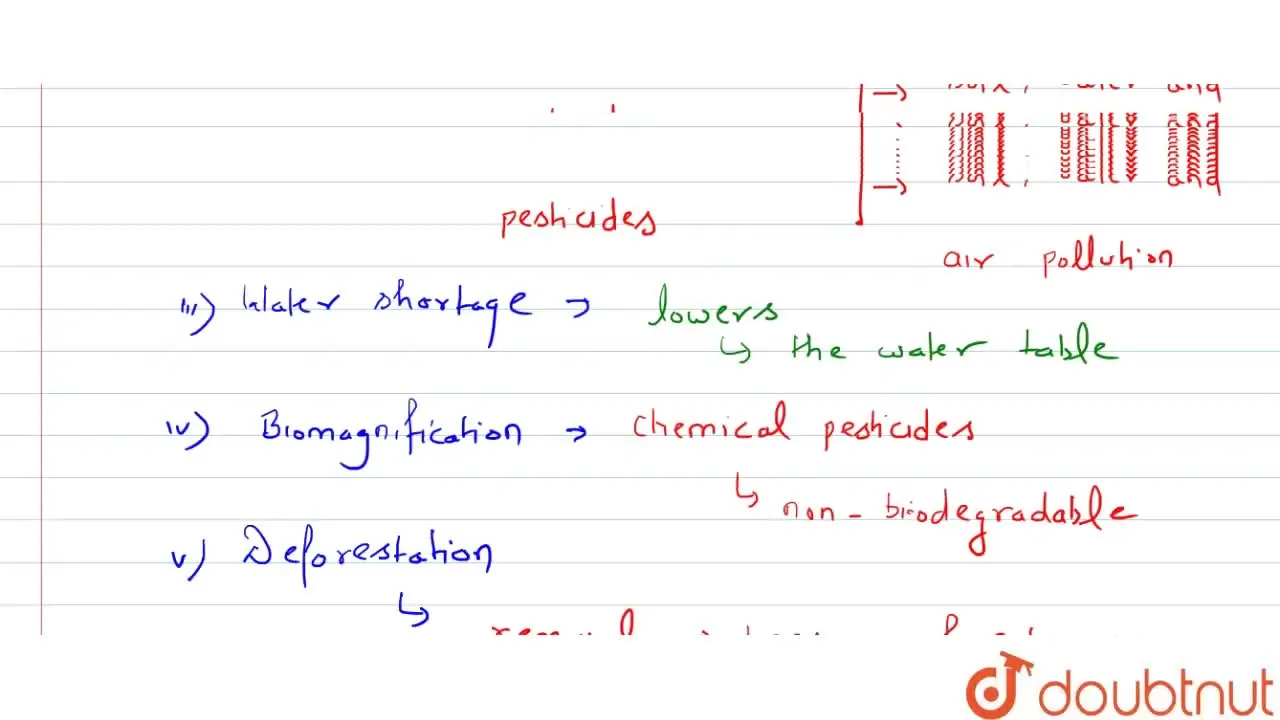 → soil, water and
→ soil, water and
pesticides
air pollution
iii) Water shortage → lowers
↳ the water table
iv) Biomagnification → Chemical pesticides
↳ non - biodegradable
v) Deforestation
↳
doubtnut